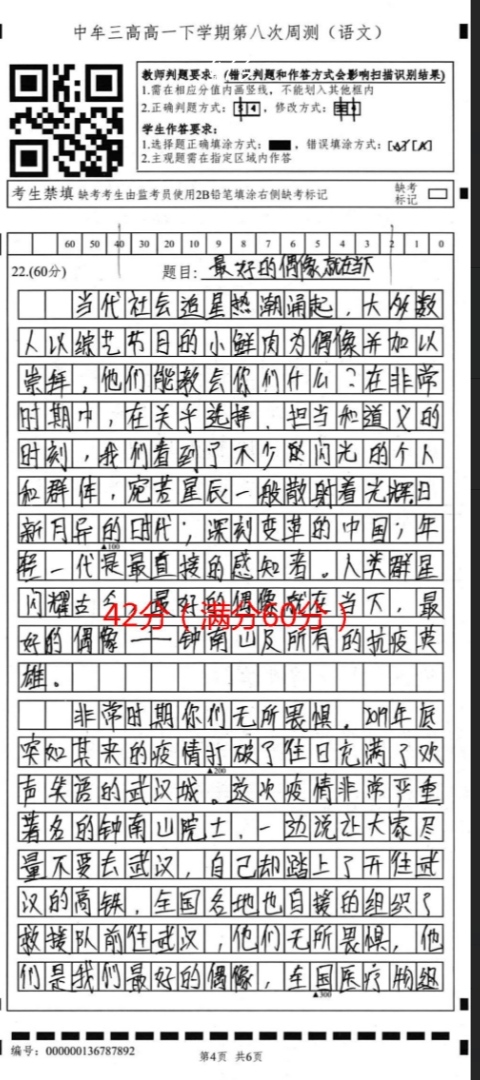 中牟三高高一下学期第八次周测（语文）
教师判题要求：（错误判题和作答方式会影响扫描识别结果）
1.需在相应分值内画竖线，不能划入其他框内
2.正确判题方式：5 4，修改方式：
学生作答要求：
1.选择题正确填涂方式：，错误填涂方式：
2.主观题需在指定区域内作答
考生禁填 缺考考生由监考员使用2B铅笔填涂右侧缺考标记
缺考
标记
60 50 40 30 20 10 9 8 7 6 5 4 3 2 1 0
22.(60分) 题目：最好的偶像就在当下
当代社会追星热潮涌起，大多数
人以综艺节目的小鲜肉为偶像并加以
崇拜，他们能教会你们什么？在非常
时期中，在关乎选择、担当和道义的
时刻，我们看到了不少闪光的个人
和群体，宛若星辰一般散射着光辉。日
新月异的时代；深刻变革的中国；年
▲100
轻一代是最直接的感知者。人类群星
闪耀古今，最好的偶像就在当下，最
42分（满分60分）
好的偶像——钟南山及所有的抗疫英
雄。
非常时期你们无所畏惧。2019年底
突如其来的疫情打破了往日充满了欢
▲200
声笑语的武汉城。这次疫情非常严重
著名的钟南山院士，一边说让大家尽
量不要去武汉，自己却踏上了开往武
汉的高铁，全国各地也自援的组织了
救援队前往武汉，他们无所畏惧，他
们是我们最好的偶像，全国医疗物组
▲300
编号：000000136787892
第4页 共6页